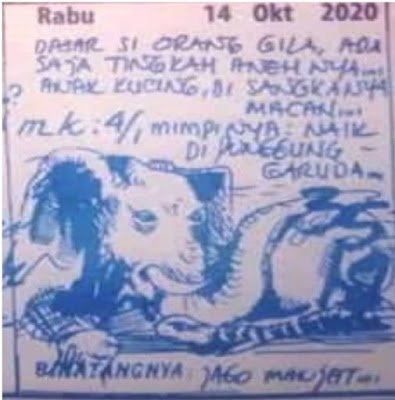 Rabu 14 Okt 2020
DASAR SI ORANG GILA, ADA
SAJA TINGKAH ANEHNYA....
ANAK KUCING, DI SANGKANYA
MACAN....
? mk: 4/, mimpinya: NAIK
DI PUNGGUNG -
GARUDA...
BINATANGNYA: JAGO MANJAT....